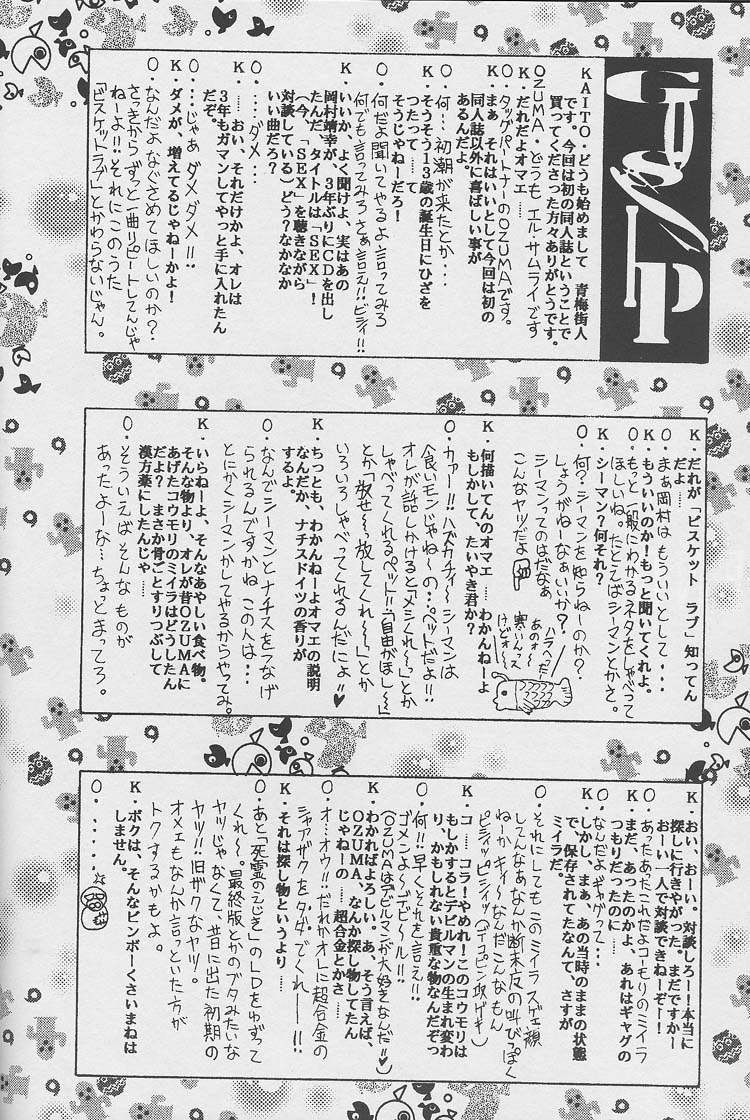 GOSIP
KAITO・どうも始めまして　青梅街人
です。今回は初の同人誌ということで
買ってくださった方々ありがとうです。
OZUMA・どうも エル・サムライです
K・だれだよオマエ……
O・タッグパートナーのOZUMAです。
K・まぁ、それはいいとして今回は初の
同人誌以外に喜ばしい事が
あるんだよ。
O・何…初潮が来たとか・・・
K・そうそう13歳の誕生日にひざを
つたって……て
そうじゃねーだろ!
O・何だよ聞いてやるよ 言ってみろ
何でも言ってみろ さぁ言え!!ビシィ!!
K・いいか、よく聞けよ、実はあの
岡村靖幸が、3年ぶりにCDを出し
たんだ、タイトルは「SEX」!
(今、「SEX」を聴きながら
対談している)どう?なかなか
いい曲だろ?
O・・・・・ダメ・・・
K・……おい、それだけかよ、オレは
3年もガマンしてやっと手に入れたん
だぞ。
O・……じゃぁ ダメダメ!!
K・ダメが、増えてるじゃねーかよ!
O・なんだよ なぐさめてほしいのか?
さっきからずっと一曲リピートしてんじゃ
ねーよ!!それにこのうた
「ビスケットラブ」とかわらないじゃん。
K・だれが「ビスケット　ラブ」知ってん
だよ……
O・まぁ岡村はもういいとして・・・
K・もういいのか!もっと聞いてくれよ。
O・もっと一般にわかるネタをしゃべって
ほしいね。たとえばシーマンとかさ。
K・シーマン?何それ?
O・何?シーマンを知らねーのか?
しょうがねーなぁいいか?
シーマンってのはだなぁ
こんなヤツだよ
ハラへった…
あのォ…
寒いんっス
けどォ…
K・何描いてんのオマエ……わかんねーよ
もしかして、たいやき君か?
O・カァー!!ハズカチィ〜シーマンは
食いモンじゃね〜の・・・ペットだよ!!
オレが話しかけると「メシくれ〜」とか
しゃべってくれるペット!!「自由がほし〜」
とか「放せ〜放してくれ〜」とか
いろいろしゃべってくれるんだにょ!!♥
K・ちっとも、わかんねーよオマエの説明
なんだか、ナチスドイツの香りが
するよ。
O・なんでシーマンとナチスをつなげ
られるんですかね この人は・・・
とにかくシーマンかしてやるからやってみ。
K・いらねーよ、そんなあやしい食べ物。
そんな物より、オレが昔OZUMAに
あげたコウモリのミイラはどうしたん
だよ?　まさか骨ごとすりつぶして
漢方薬にしたんじゃ……
O・そういえば そんな ものが
あったよーな…ちょっとまってろ。
K・おい、おーい。対談しろー!本当に
探しに行きやがった。まだですかー
おーい一人で対談できねーぞー!
O・あったあった これだよコモリのミイラ
K・まだ、あったのかよ。あれはギャグの
つもりだったのに……
O・なんだよ ギャグって・・・
K・しかし、まぁ、あの当時のままの状態
で、保存されてたなんて、さすが
ミイラだ。
O・それにしても このミイラ スゲェ顔
してんなぁ なんか断末夜の叫びっぽく
ねーか キィ〜 なんだこんなもん
ピシィッ ピシィッ(デコピン攻ゲキ)
K・コ……コラ!やめれ!このコウモリは
もしかするとデビルマンの生まれ変わ
り、かもしれない貴重な物なんだぞっ
O・何!!早くそれを言え!!
ゴメンよ〜デビ〜ル!!
(OZUMAはデビルマンが大好きなんだ!!♥)
K・わかればよろしい。あ、そう言えば、
OZUMA、なんか探し物してたん
じゃねーの……超合金とかさ……
O・オ…オウ!!だれかオレに超合金の
シャアザクをタダでくれ———!!
K・それは探し物というより……
O・あと「死霊のえじき」のLDをゆずって
くれ〜。最終版とかのブタみたいな
ヤツじゃなくて、昔に出た初期の
ヤツ!!旧ザクなヤツ!。
オメェもなんか言っといた方が
トクするかもよ。
K・ボクは、そんなビンボーくさいまねは
しません。
O・・・・・・